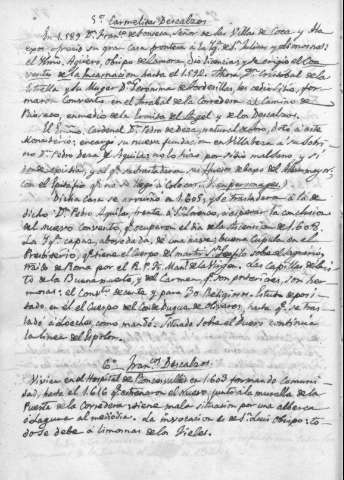 5º Carmelitas Descalzos
En 1.589 Dn. Franco. de Fonseca, Señor de las Villas de Coca y
ofrecio su gran Casa frontera a la Yga. de Sn. Julian, y dimosnas:
el Yltmo. Aguero, Obispo de Zamora, dio licencias, y se erigio el Con
vento de la Encarnacion hasta el 1.592. Ahora Dn. Cristobal de la
Estrella y su Muger Da. Geronima de Sordesillas, les cedio sitio, for
maron Convento en el Arrabal de la Corredera al Camino de
en medio de la Ermita del Angel y de los Descalzos.
El Emmo. Cardenal Dn. Pedro de Deza, natural de Toro, doto a este
Monasterio; encargo su nueva fundacion en Villabeza a su Sobri
no Dn. Pedro Deza de Aguilar, no lo hizo por sitio malsano, y si
con el Epitafio qe. no se llego a Colocar.
Dicha casa se arruino a 1.605, y se trasladaron a la de
dicho Dn. Pedro Aguilar, frente a Sn. Lorenzo, a esperar la conclusion
del nuevo Convento, qe. ocuparon el dia de la Ascension de 1.608.
La Yga. capaz, abovedada, de una nave; buena Cupula en el
Presbiterio, qe. tiene el Cuerpo del martir Sn.
traido de Roma por el R. P. Fr. Manl. de la Virgen. Las Capillas del Sto.
to de la Buena muerte, y del Carmen qe. son posteriores, son her
mosas: el Convto. decente y para 30 Religiosos. Estubo de posi
tado, en el el Cuerpo del Conde Duque de Olivares, hasta qe. se tras
ladó a Loeches, como mandó. Situado sobre el Duero continua
la linea del Espolon.
6º Francos. Descalzos
Vivian en el Hospital de Roncesvalles en 1.603 formando Comuni
dad, hasta el 1.616 qe. estrenaron el Nuevo junto a la muralla de la
Puerta de la Corredera: tiene mala situacion por una alberca
o laguna al mediodia. La invocacion es de Sn. Luis Obispo: to
do se debe a limosnas de los Fieles.